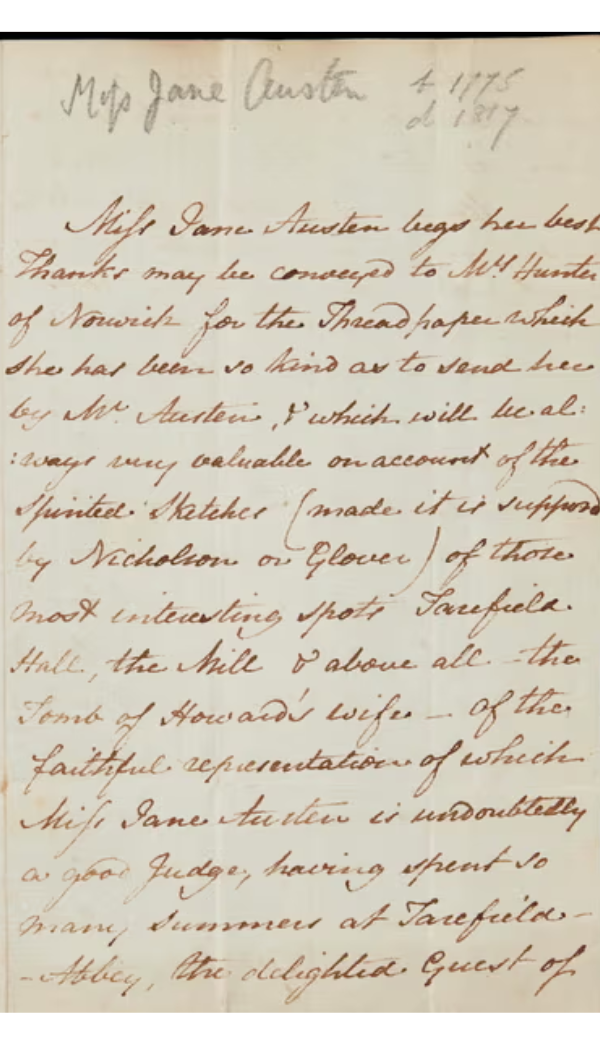 Miss Jane Austen b 1775
d 1817
Miss Jane Austen begs her best
Thanks may be conveyed to Mrs Hunter
of Norwich for the Threadpaper which
she has been so kind as to send her
by Mr Austen, & which will be al:
:ways very valuable on account of the
spirited Sketches (made it is supposed
by Nicholson or Glover) of those
most interesting spots Tarefield
Hall, the Mill & above all the
Tomb of Howard's wife — of the
faithful representation of which
Miss Jane Austen is undoubtedly
a good Judge, having spent so
many summers at Tarefield –
–Abbey, the delighted Guest of